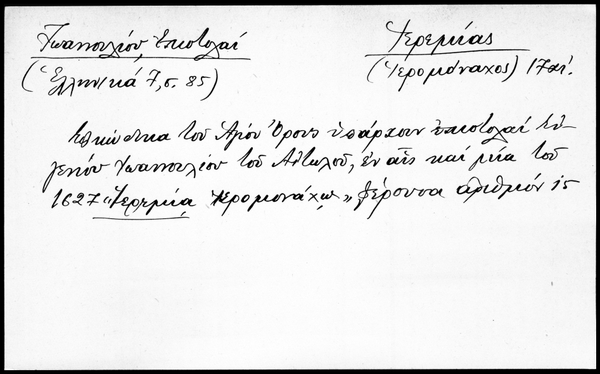 Ἰωαννουλίου, Ἐπιστολαί
(Ἑλληνικά 7, σ. 85)
Ἱερεμίας
(Ἱερομόναχος) 17 αἰ.
Ἐν κώδικα τοῦ Ἁγίου Ὄρους ὑπάρχουν ἐπιστολαί Εὐ-
γενίου Ἰωαννουλίου τοῦ Αἰτωλοῦ, ἐν αἷς καί μία τοῦ
1627 "Ἱερεμίᾳ Ἱερομονάχῳ" φέρουσα ἀριθμόν 15